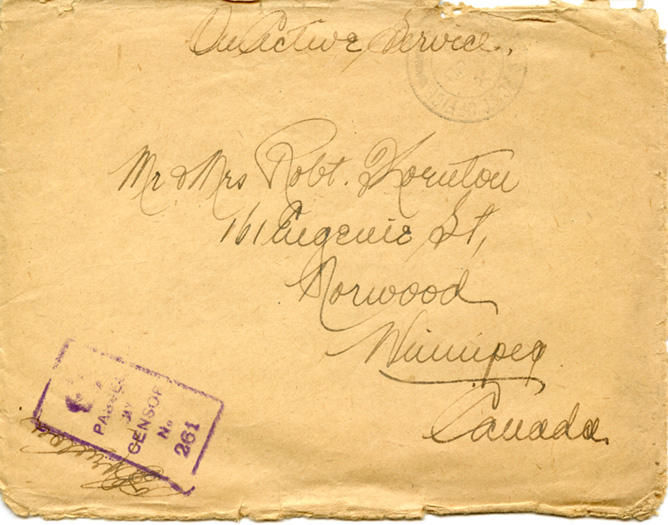 On Active Service.
Mr & Mrs Robt. Thornton
161 Eugenie St,
Norwood
Winnipeg
Canada.
PASSED
BY
CENSOR
No
261